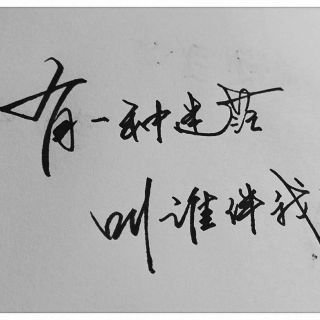 有一种迷
叫谁伴我